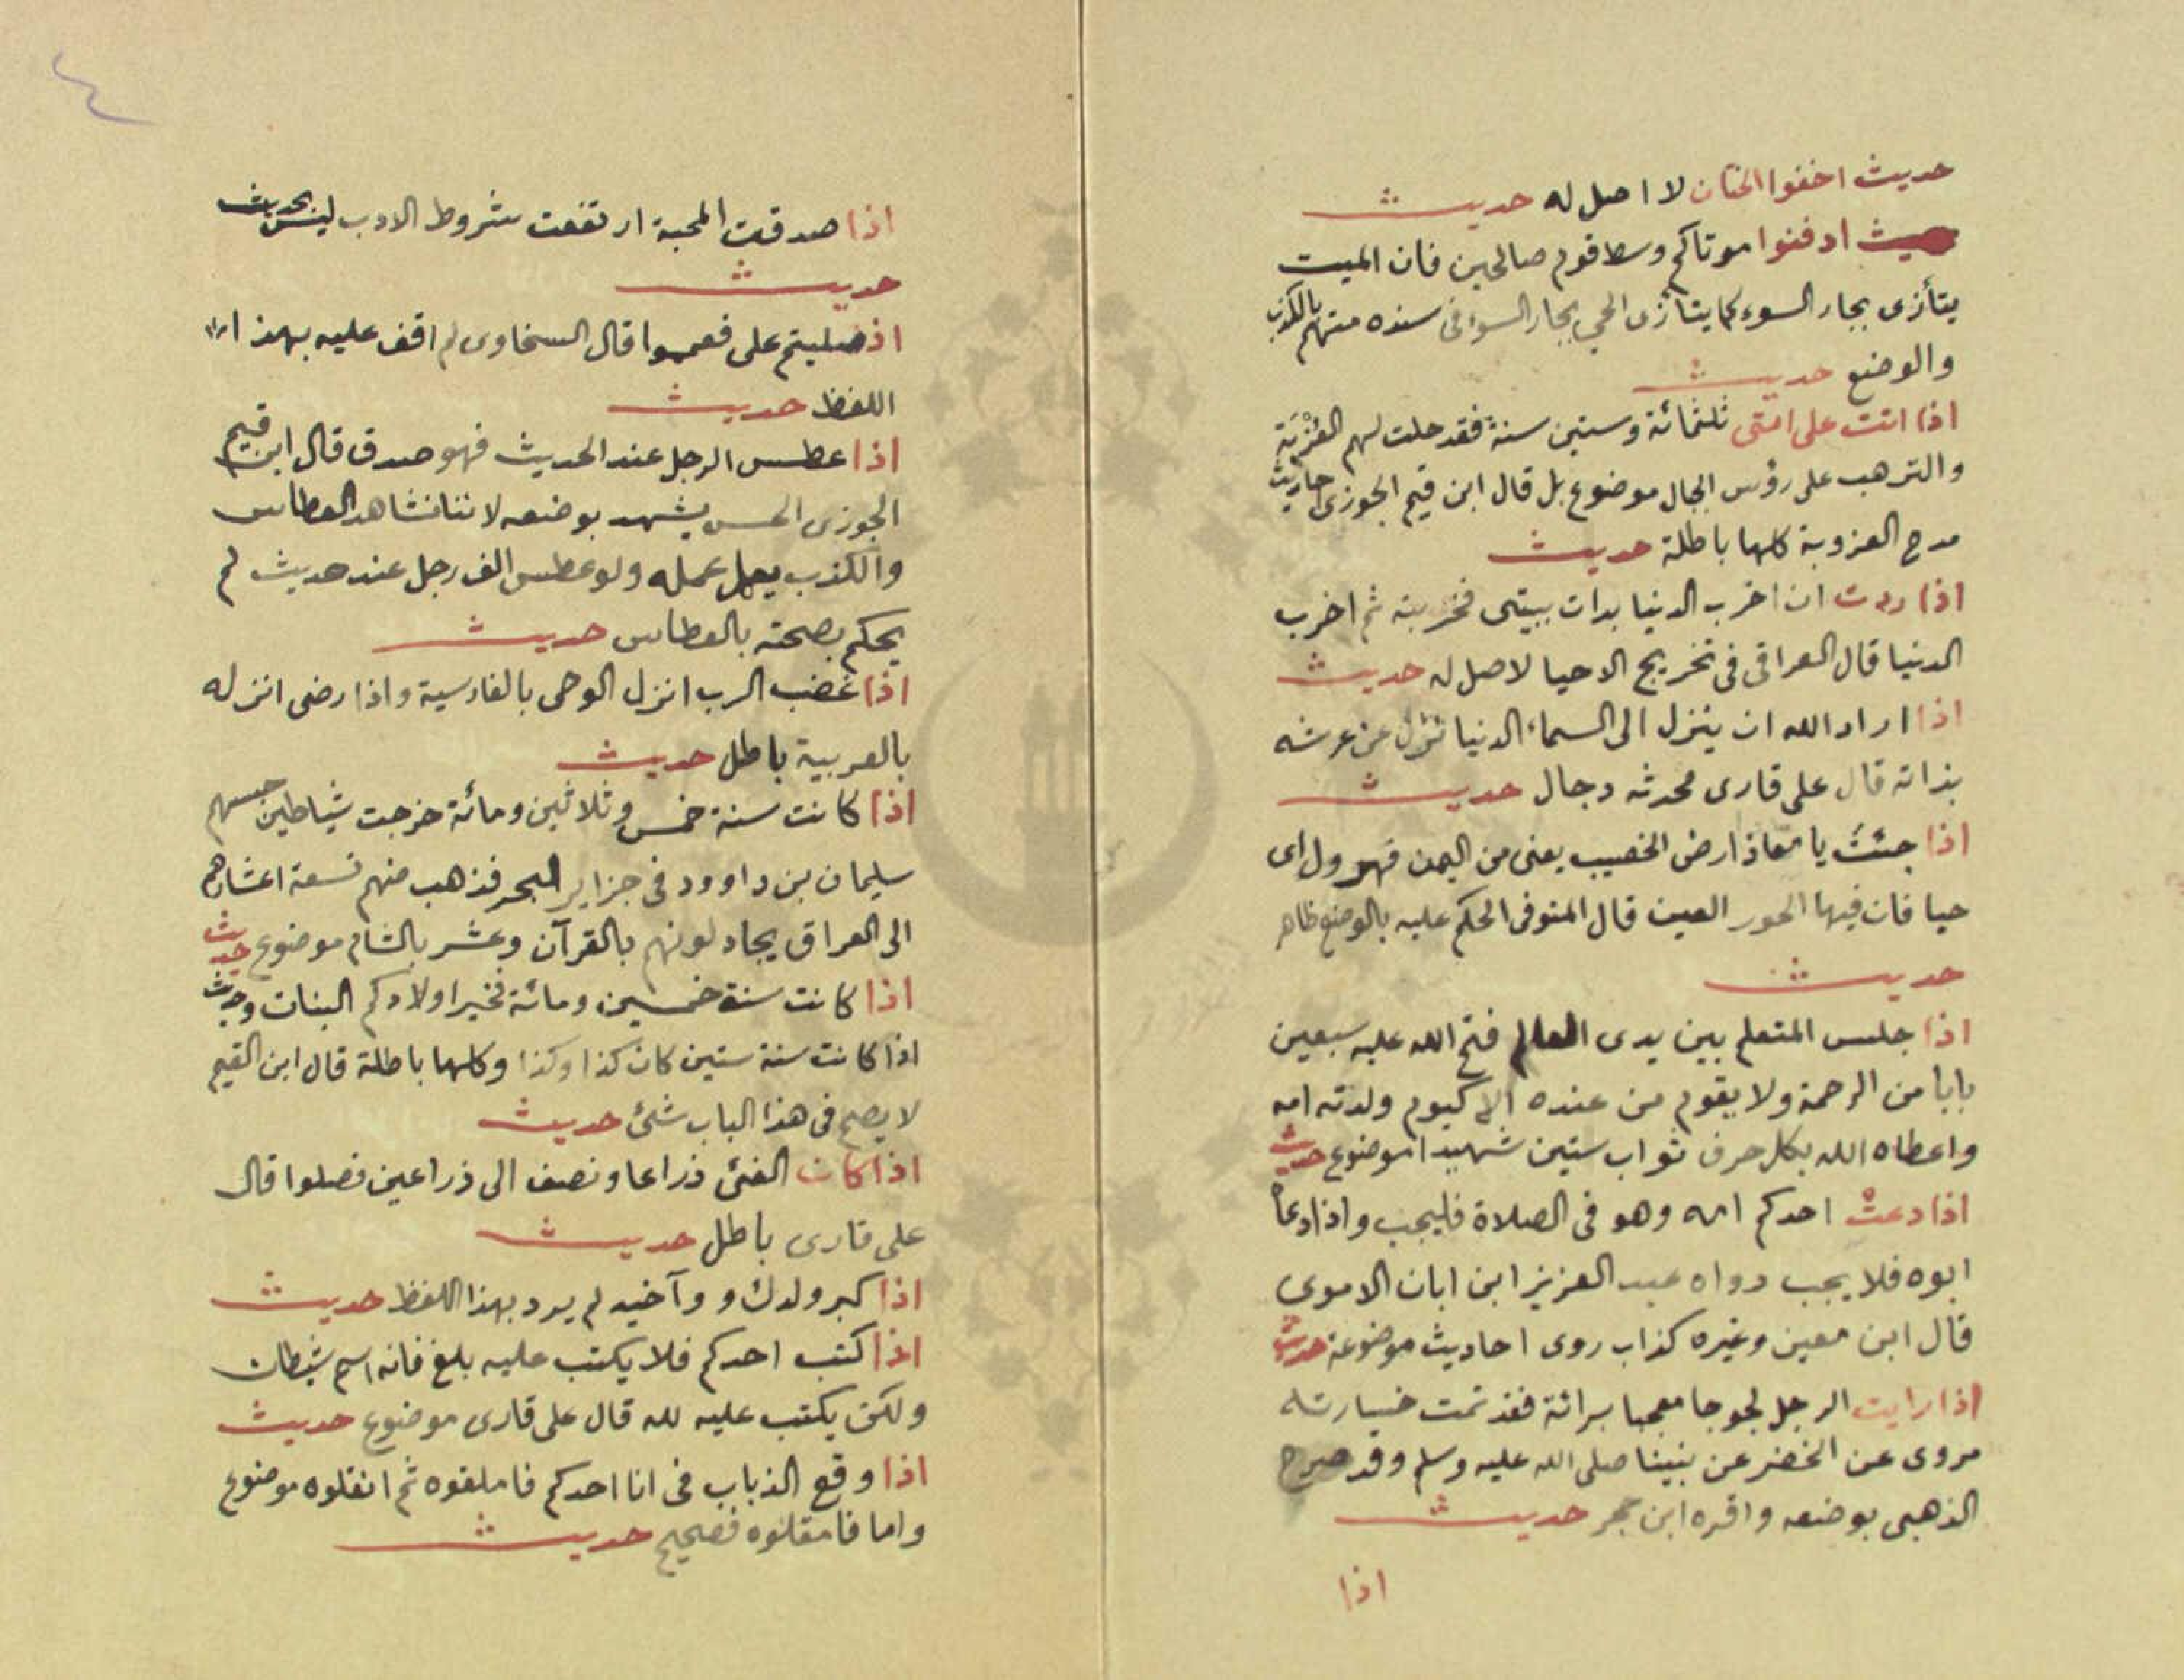 حديث اخفوا الختان لا اصل له حديث
حديث ادفنوا موتاكم وسط قوم صالحين فان الميت
يتأزى بجار السوء كما يتأزى الحي بجار السوء فى سنده متهم بالكذب
والوضع حديث
اذا اتت على امتى ثلثمائة وستين سنة فقد حلت لهم العزبة
والترهب على رؤس الجال موضوع بل قال ابن قيم الجوزى احاديث
مدح العزوبة كلها باطلة حديث
اذا ردت ان اخرب الدنيا بدات ببيتى فخربته ثم اخرب
الدنيا قال العراقى فى تخريج الاحيا لا اصل له حديث
اذا اراد الله ان ينزل الى السماء الدنيا نزل عن عرشه
بذاته قال على قارى محدثه دجال حديث
اذا جئت يا معاذ ارض الخصيب يعنى من اليمن فهرول اى
حيا فان فيها الحور العين قال المنوفى الحكم عليه بالوضع ظاهر
حديث
اذا جلس المتعلم بين يدى العالم فتح الله عليه سبعين
بابا من الرحمة ولا يقوم من عنده الا كيوم ولدته امه
واعطاه الله بكل حرف ثواب ستين شهيدا موضوع حديث
اذا دعت احدكم امه وهو فى الصلاة فليجب واذا دعا
ابوه فلا يجب رواه عبد العزيز ابن ابان الاموى
قال ابن معين وغيره كذاب روى احاديث موضوعة حديث
اذا رايت الرجل لجوجا معجبا برائة فقد تمت خسارته
مروى عن الخضر عن نبينا صلى الله عليه وسلم وقد صرح
الذهبى بوضعه واقره ابن حجر حديث
اذا
٤
اذا صدقت المحبة ارتفعت شروط الادب ليس بحديث
حديث
اذ صليتم على فعمموا قال السخاوى لم اقف عليه بهذا
اللفظ حديث
اذا عطس الرجل عند الحديث فهو صدق قال ابن قيم
الجوزى الحس يشهد بوضعه لاننا نشاهد العطاس
والكذب يعمل عمله ولو عطس الف رجل عند حديث لم
يحكم بصحته بالعطاس حديث
اذا غضب الرب انزل الوحى بالفارسية واذا رضى انزله
بالعربية باطل حديث
اذا كانت سنة خمس وثلاثين ومائة خرجت شياطين حبسهم
سليمان بن داوود فى جزاير البحر فذهب منهم تسعة اعشارهم
الى العراق يجادلونهم بالقرآن وعشر بالشام موضوع حديث
اذا كانت سنة خمسين ومائة فخير اولادكم البنات وحديث
اذا كانت سنة ستين كان كذا وكذا وكلها باطلة قال ابن القيم
لا يصح فى هذا الباب شئ حديث
اذا كان الفئ ذراعا ونصف الى ذراعين فصلوا قال
على قارى باطل حديث
اذا كبر ولدك و وآخيه لم يرد بهذا اللفظ حديث
اذا كتب احدكم فلا يكتب عليه بلغ فانه اسم شيطان
ولكن يكتب عليه لله قال على قارى موضوع حديث
اذا وقع الذباب فى انا احدكم فاملقوه ثم انقلوه موضوع
واما فامقلوه فصحيح حديث